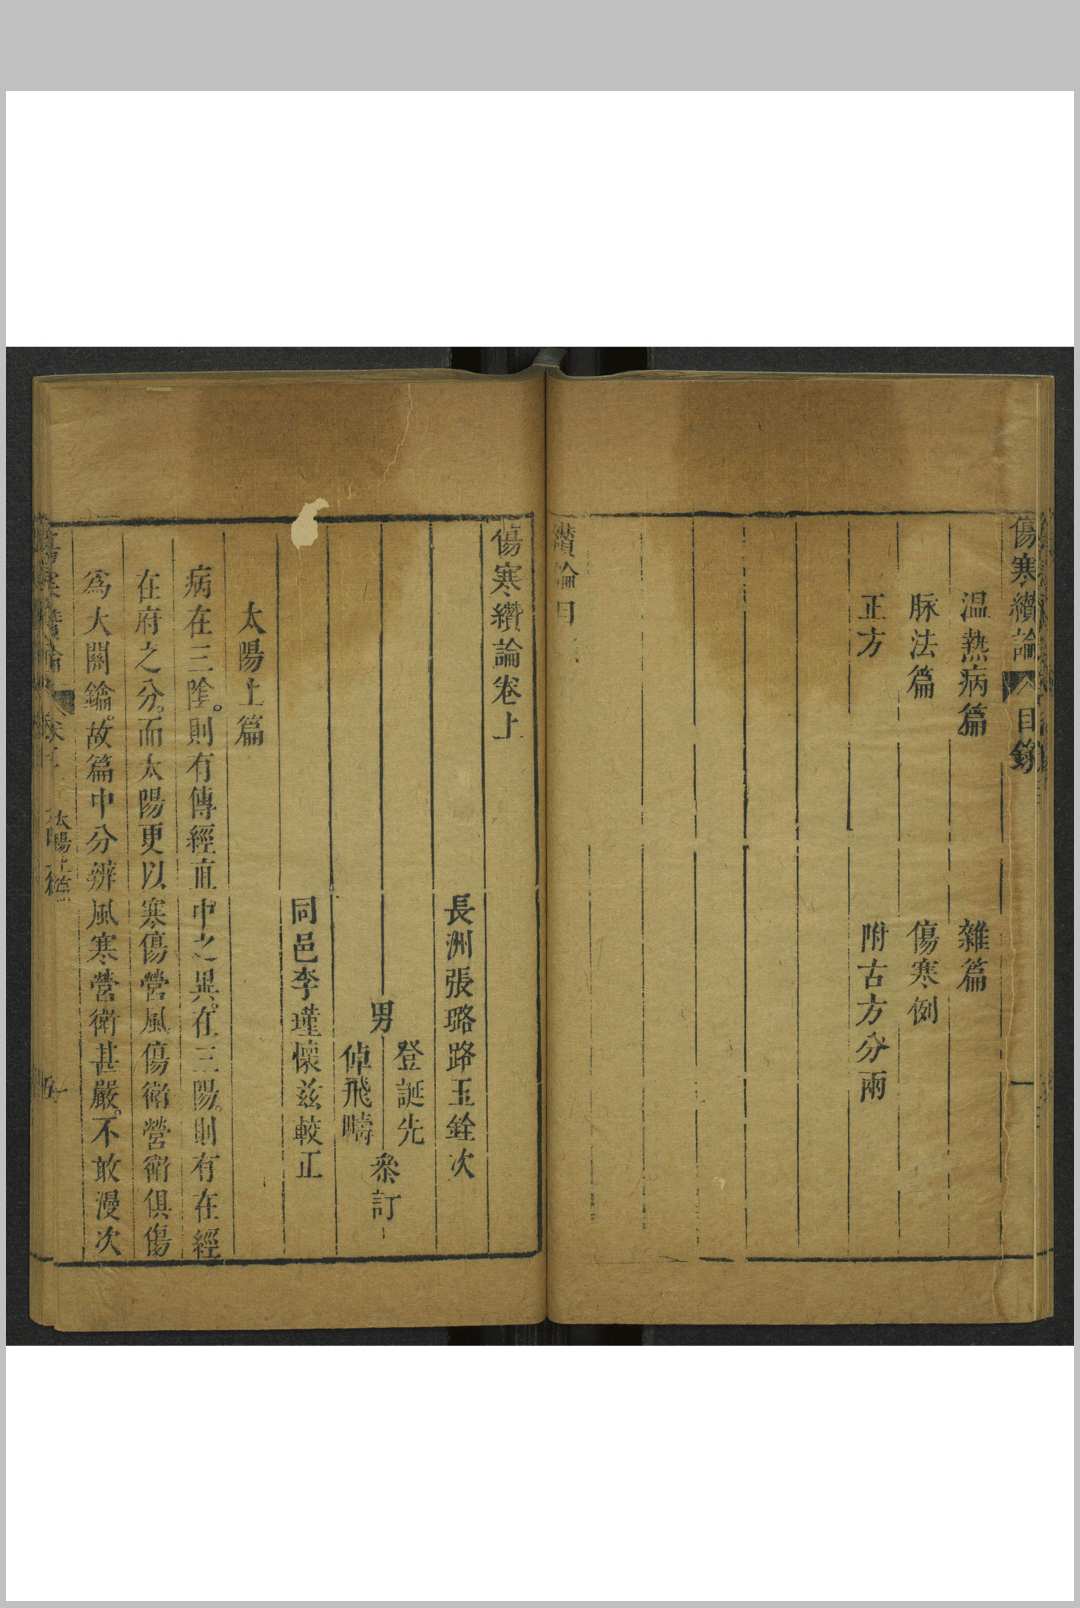 傷寒纘論 目錄
溫熱病篇 雜篇
脉法篇 傷寒例
正方 附古方分兩
纘論目
傷寒纘論卷上
長洲張璐路玉銓次
男
登誕先
倬飛疇
叅訂
同邑李瑾懷兹較正
太陽上篇
病在三陰。則有傳經直中之異。在三陽。則有在經
在府之分。而太陽更以寒傷營。風傷衛。營衛俱傷
爲大關鑰。故篇中分辨風寒營衛甚嚴。不敢漫次
太陽上篇